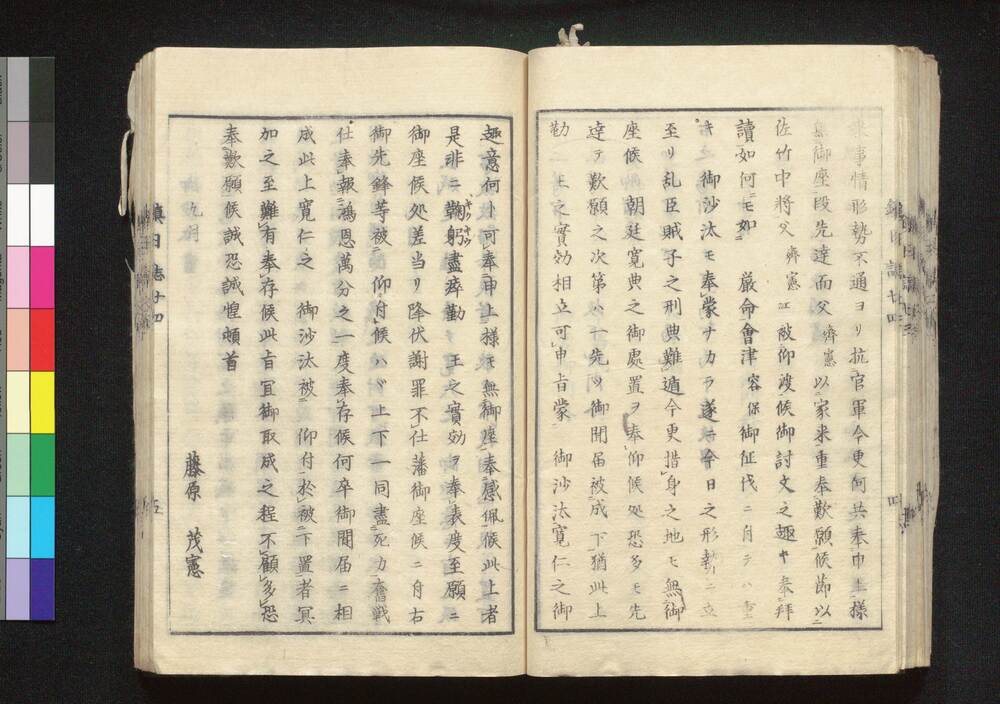 事情形勢不通ヨリ抗官軍今更何共奉申上様
無御座段先達而父齊憲以家来重奉歎願候節以
佐竹中将父齊憲江被仰渡候御討文之趣ヤ奉拜
讀如何ニモ如　厳命會津容保御征伐ニ付テハ重
キ御沙汰モ奉蒙ナカラ遂ニ今日之形勢ニ立
至リ乱臣賊子之刑典難遁今更措身之地モ無御
座候朝廷寛典之御處置ヲ奉仰候処恐多モ先
達テ歎願之次第ハ一先ツ御聞届被成下猶此上
勤王之實効相立可申旨蒙　御沙汰寛仁之御
趣意何ト可奉申上様モ無御座奉感佩候此上者
是非ニ鞠躬盡瘁勤　王之實効ヲ奉表度至願ニ
御座候処差当リ降伏謝罪不仕藩御座候ニ付右
御先鋒等被　仰付候ハヾ上下一同盡死力奮戰
仕奉報鴻恩萬分之一度奉存候何卒御聞届ニ相
成此上寛仁之　御沙汰被　仰付於被下置者冥
加之至難有奉存候此旨冝御取成之程不顧多恐
奉歎願候誠恐誠惶頓首
藤原　茂憲